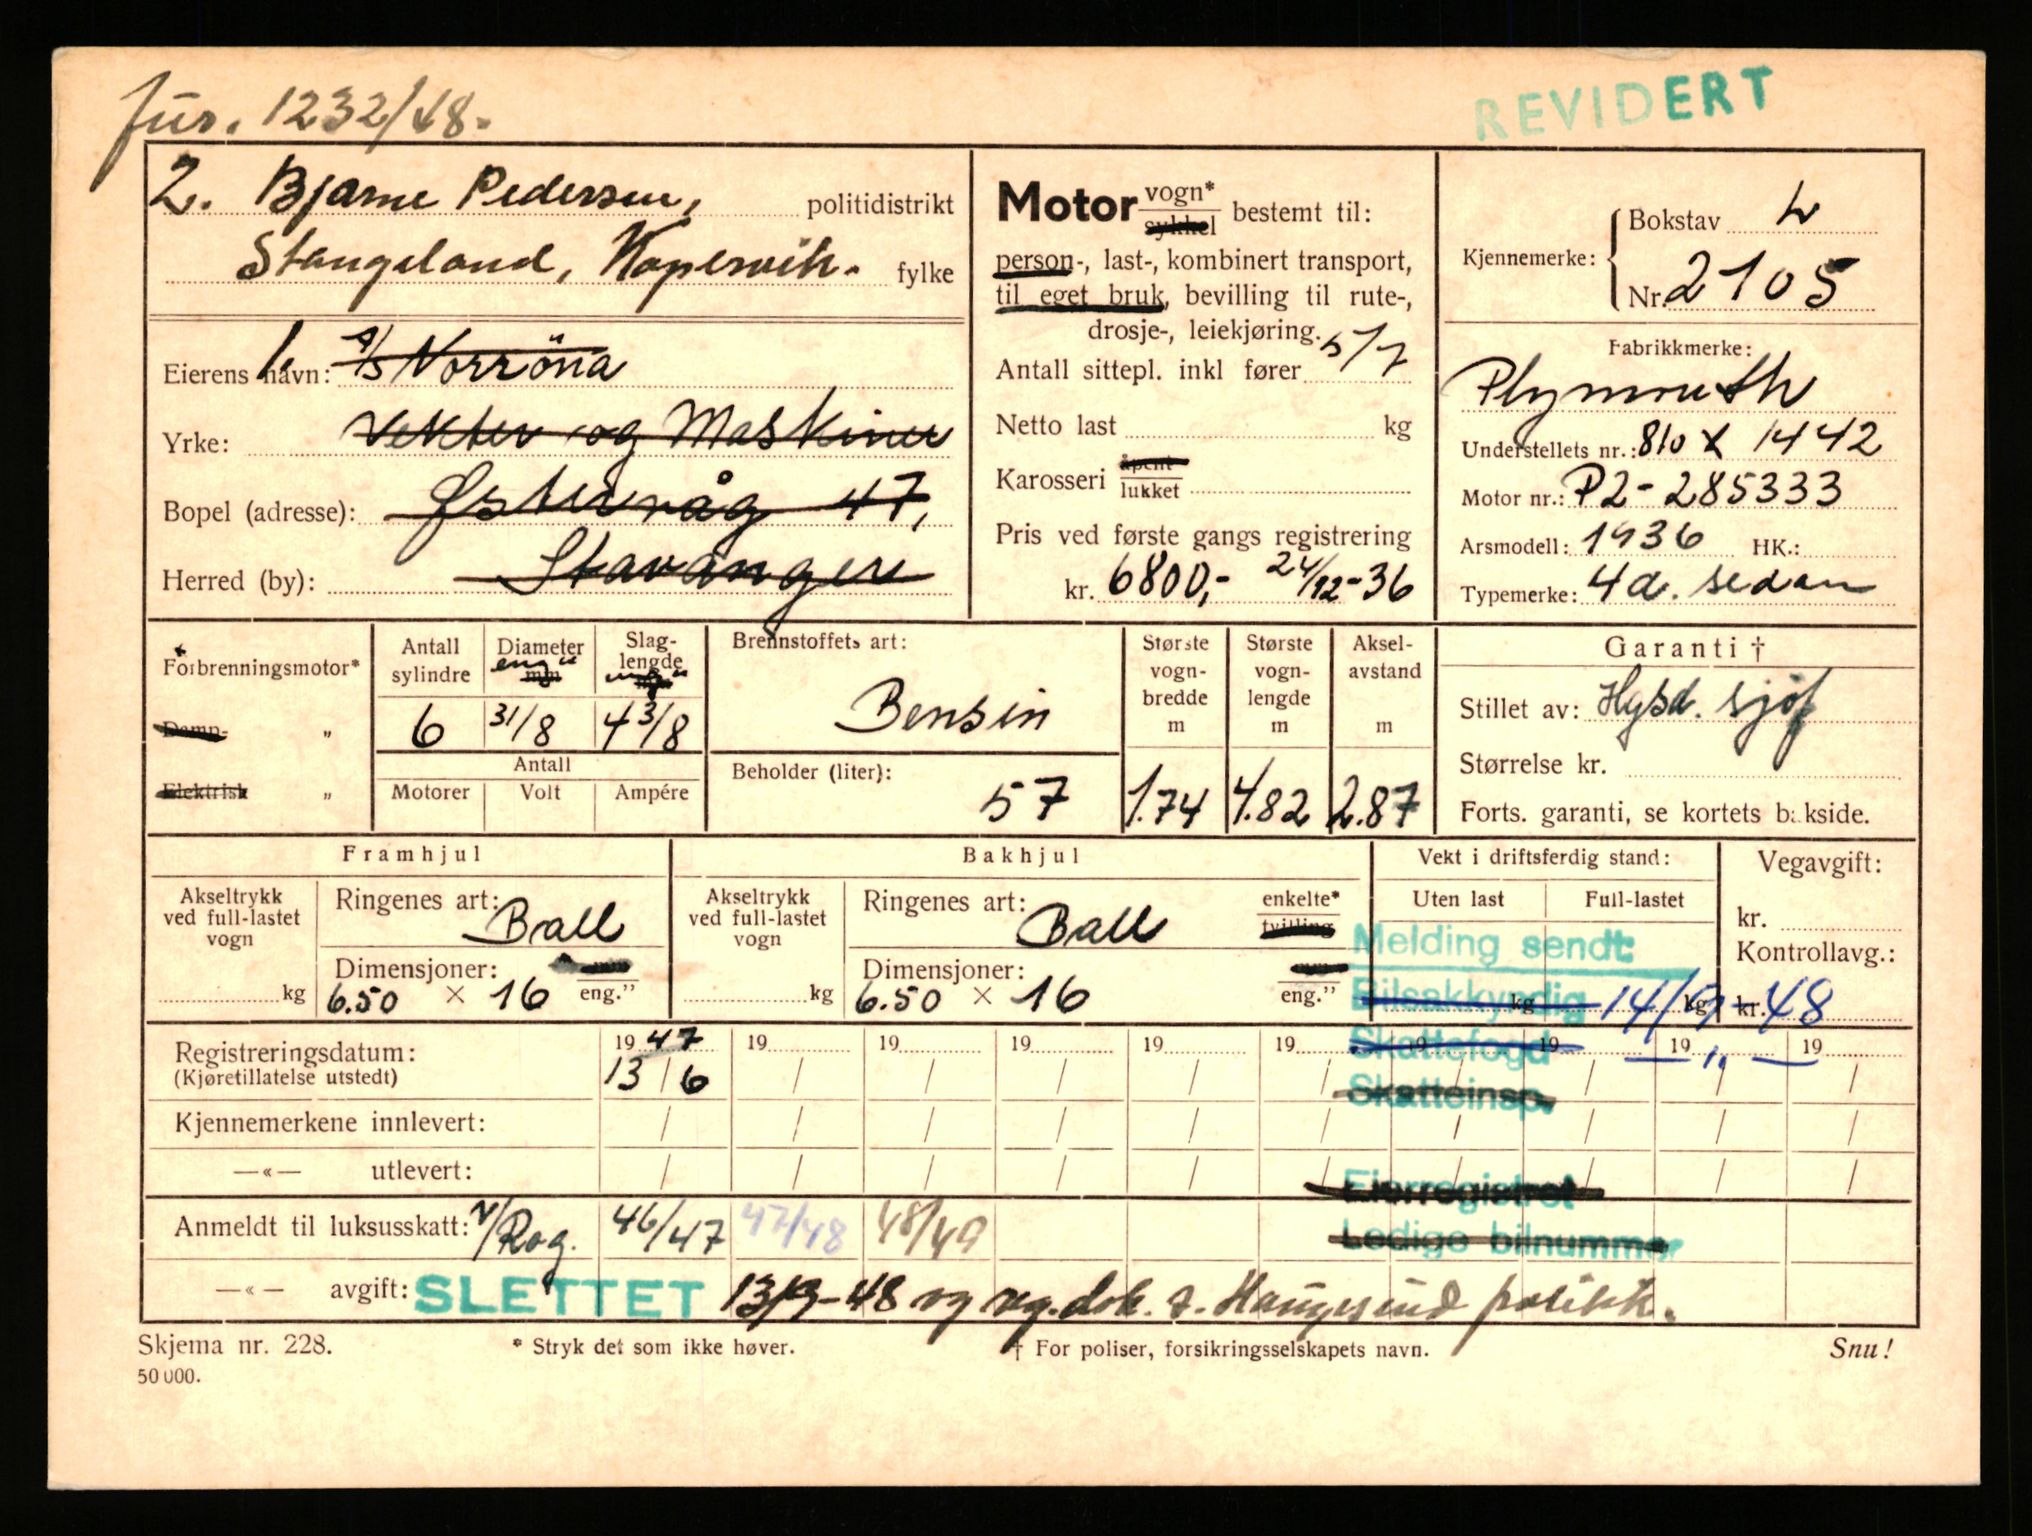 Jur. 1232/48.
REVIDERT
2. Bjarne Pedersen, politidistrikt
Stangeland, Kopervik. fylke
Eierens navn: 1. A/S Norröna
Yrke: Vekter og Maskiner
Bopel (adresse): Østervåg 47,
Herred (by): Stavanger
Motor vogn* sykkel bestemt til:
person-, last-, kombinert transport,
til eget bruk, bevilling til rute-,
drosje-, leiekjøring.
Antall sittepl. inkl fører 5/7
Netto last kg
Karosseri åpent lukket
Pris ved første gangs registrering
kr. 6800,- 24/12-36
Kjennemerke: Bokstav L
Nr. 2105
Fabrikkmerke:
Plymouth
Understellets nr.: 810 X 1442
Motor nr.: P2-285333
Arsmodell: 1936 HK.:
Typemerke: 4d. sedan
Forbrenningsmotor*
Damp- „
Elektrisk „
Antall sylindre
6
Diameter eng" mm
31/8
Slaglengde eng" mm
4 3/8
Antall
Motorer Volt Ampére
Brennstoffets art:
Bensin
Beholder (liter):
57
Største vognbredde m
1.74
Største vognlengde m
4.82
Akselavstand m
2.87
Garanti †
Stillet av: Hysd. Sjøf
Størrelse kr.
Forts. garanti, se kortets bakside.
Framhjul
Akseltrykk ved full-lastet vogn
kg
Ringenes art: Ball
Dimensjoner:
6.50 × 16 eng."
Bakhjul
Akseltrykk ved full-lastet vogn
kg
Ringenes art: Ball
enkelte* tvilling
Dimensjoner:
6.50 × 16 eng."
Vekt i driftsferdig stand:
Uten last Full-lastet
kg kg
Vegavgift:
kr.
Kontrollavg.:
kr.
Melding sendt:
Bilsakkyndig 14/9-48
Skattefogd — " —
Skatteinsp.
Eierregistret
Ledige bilnummer
Registreringsdatum: 1947 19 19 19 19 19 19 19 19 19
(Kjøretillatelse utstedt) 13/6 / / / / / / / / /
Kjennemerkene innlevert: / / / / / / / / / /
—«— utlevert: / / / / / / / / / /
Anmeldt til luksusskatt: V/Rog. 46/47 47/48 48/49
—«— avgift: SLETTET 13/9-48 og vg.dok. s. Haugesund politik.
Skjema nr. 228.
* Stryk det som ikke høver.
† For poliser, forsikringsselskapets navn.
Snu!
50 000.